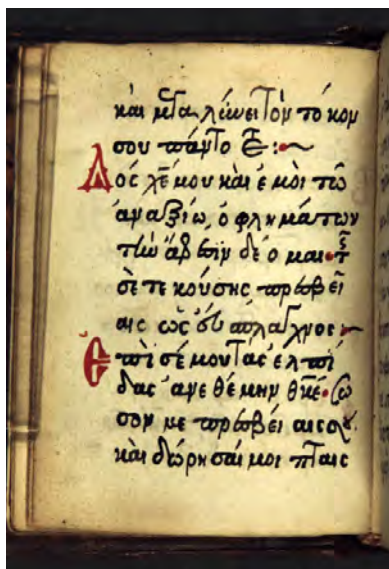 και μετα λέωσ τὸν το κομ
σου πάντο
Δός χε μου και ε μοι τω
αναξίω, ὀφλημάτων
την ἄφεσιν δέομαι • τ
σὲ τεκούσης πρεσβεί
αις ὡς εὔσπλαγχνος
Επὶ σέ μου τὰς ελπί
δας ἀνεθέμην θκε • σω
σον με πρεσβεί αις σου
καὶ δώρησαί μοι πταισ